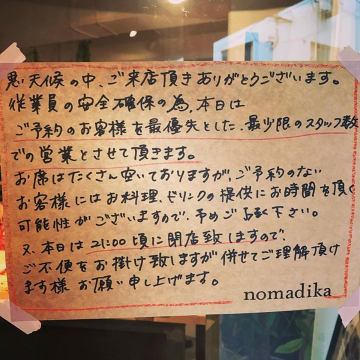 悪天候の中、ご来店頂きありがとうございます。
従業員の安全確保の為、本日は
ご予約のお客様を最優先とした、最少限のスタッフ数
での営業とさせて頂きます。
お席はたくさん空いておりますが、ご予約のない
お客様にはお料理、ドリンクの提供にお時間を頂く
可能性がございますので、予めご了承下さい。
又、本日は21:00頃に閉店致しますので、
ご不便をお掛け致しますが併せてご理解頂け
ます様お願い申し上げます。
nomadika